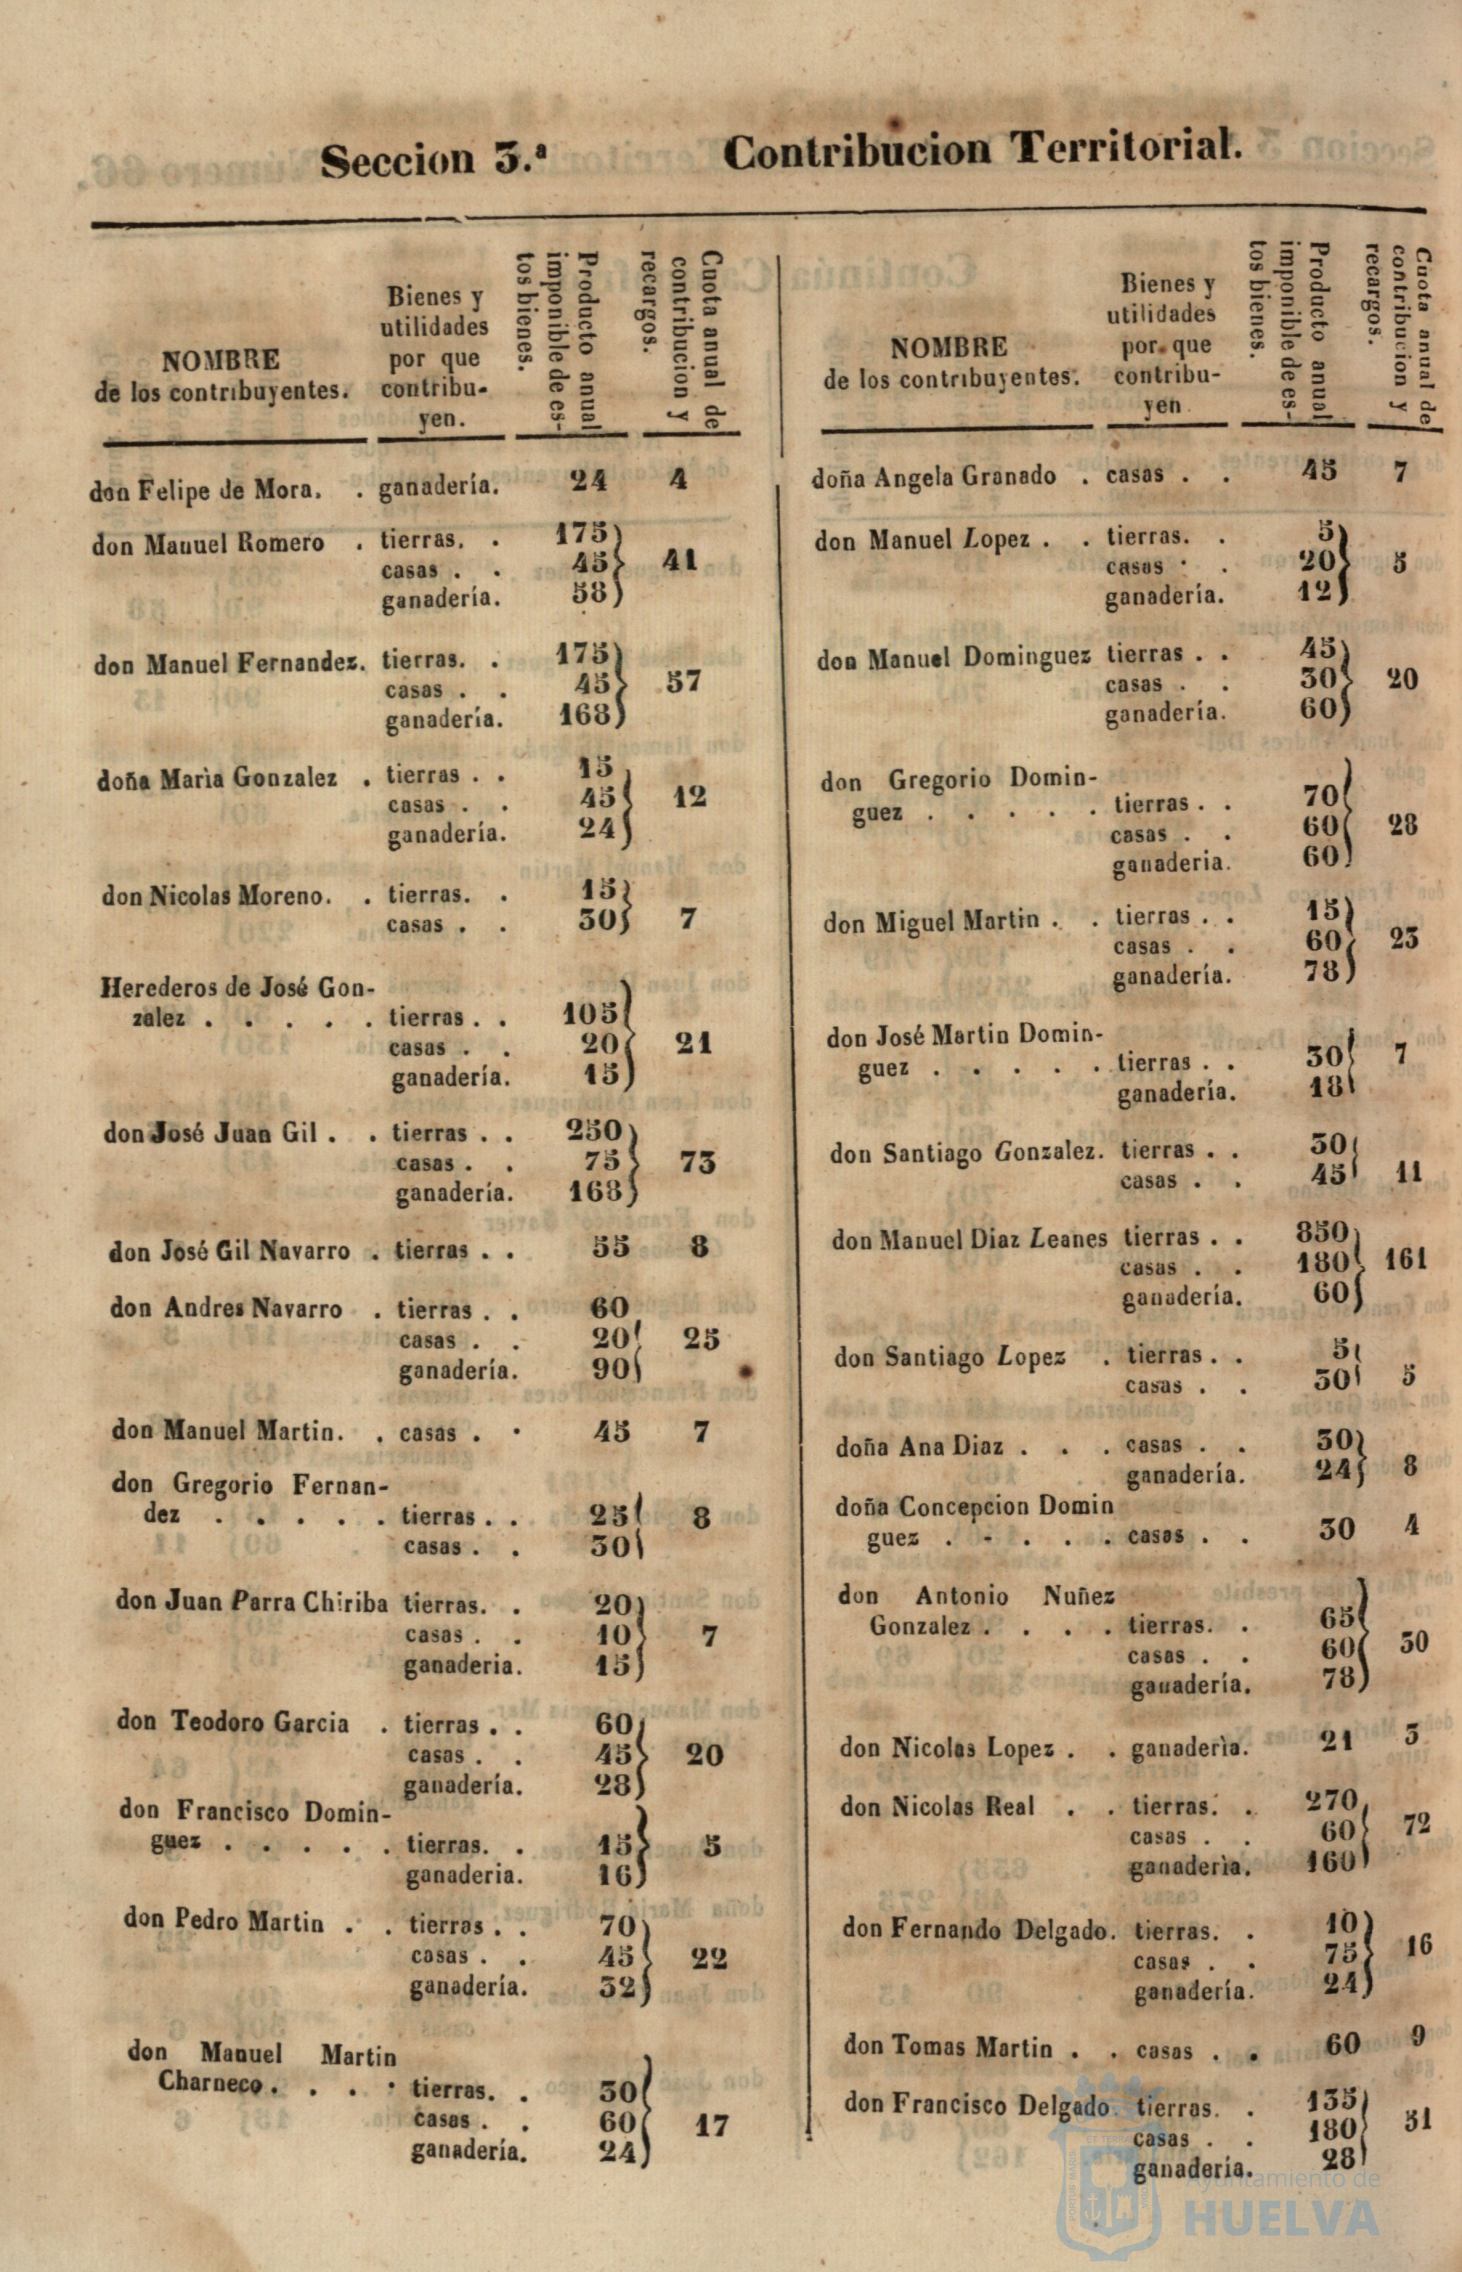 Seccion 3.ª Contribucion Territorial.
NOMBRE
de los contribuyentes.
Bienes y
utilidades
por que
contribu-
yen.
Producto anual
imponible de es-
tos bienes.
Cuota anual de
contribucion y
recargos.
don Felipe de Mora. . ganadería. 24 4
don Manuel Romero . tierras. . 175
casas . . 45 41
ganadería. 58
don Manuel Fernandez. tierras. . 175
casas . . 45 57
ganadería. 168
doña Maria Gonzalez . tierras . . 15
casas . . 45 12
ganadería. 24
don Nicolas Moreno. . tierras. . 15
casas . . 30 7
Herederos de José Gon-
zalez . . . . . tierras . . 105
casas . . 20 21
ganadería. 15
don José Juan Gil . . tierras . . 250
casas . . 75 73
ganadería. 168
don José Gil Navarro . tierras . . 55 8
don Andres Navarro . tierras . . 60
casas . . 20 25
ganadería. 90
don Manuel Martin. . casas . . 45 7
don Gregorio Fernan-
dez . . . . . tierras . . 25 8
casas . . 30
don Juan Parra Chiriba tierras. . 20
casas . . 10 7
ganaderia. 15
don Teodoro Garcia . tierras . . 60
casas . . 45 20
ganadería. 28
don Francisco Domin-
guez . . . . . tierras. . 15 5
ganaderia. 16
don Pedro Martin . . tierras . . 70
casas . . 45 22
ganadería. 32
don Manuel Martin
Charneco . . . . tierras. . 30
casas . . 60 17
ganadería. 24
NOMBRE
de los contribuyentes.
Bienes y
utilidades
por que
contribu-
yen
Producto anual
imponible de es-
tos bienes.
Cuota anual de
contribucion y
recargos.
doña Angela Granado . casas . . 45 7
don Manuel Lopez . . tierras. . 5
casas . . 20 5
ganadería. 12
don Manuel Dominguez tierras . . 45
casas . . 30 20
ganadería. 60
don Gregorio Domin-
guez . . . . . tierras . . 70
casas . . 60 28
ganaderia. 60
don Miguel Martin . . tierras . . 15
casas . . 60 23
ganadería. 78
don José Martin Domin-
guez . . . . . tierras . . 30 7
ganadería. 18
don Santiago Gonzalez. tierras . . 30
casas . . 45 11
don Manuel Diaz Leanes tierras . . 850
casas . . 180 161
ganadería. 60
don Santiago Lopez . tierras . . 5
casas . . 30 5
doña Ana Diaz . . . casas . . 30
ganadería. 24 8
doña Concepcion Domin
guez . - . . . casas . . 30 4
don Antonio Nuñez
Gonzalez . . . . tierras. . 65
casas . . 60 30
ganadería. 78
don Nicolas Lopez . . ganadería. 21 3
don Nicolas Real . . tierras. . 270
casas . . 60 72
ganadería. 160
don Fernando Delgado. tierras. . 10
casas . . 75 16
ganadería. 24
don Tomas Martin . . casas . . 60 9
don Francisco Delgado. tierras. . 135
casas . . 180 51
ganadería. 28
Ayuntamiento de
HUELVA